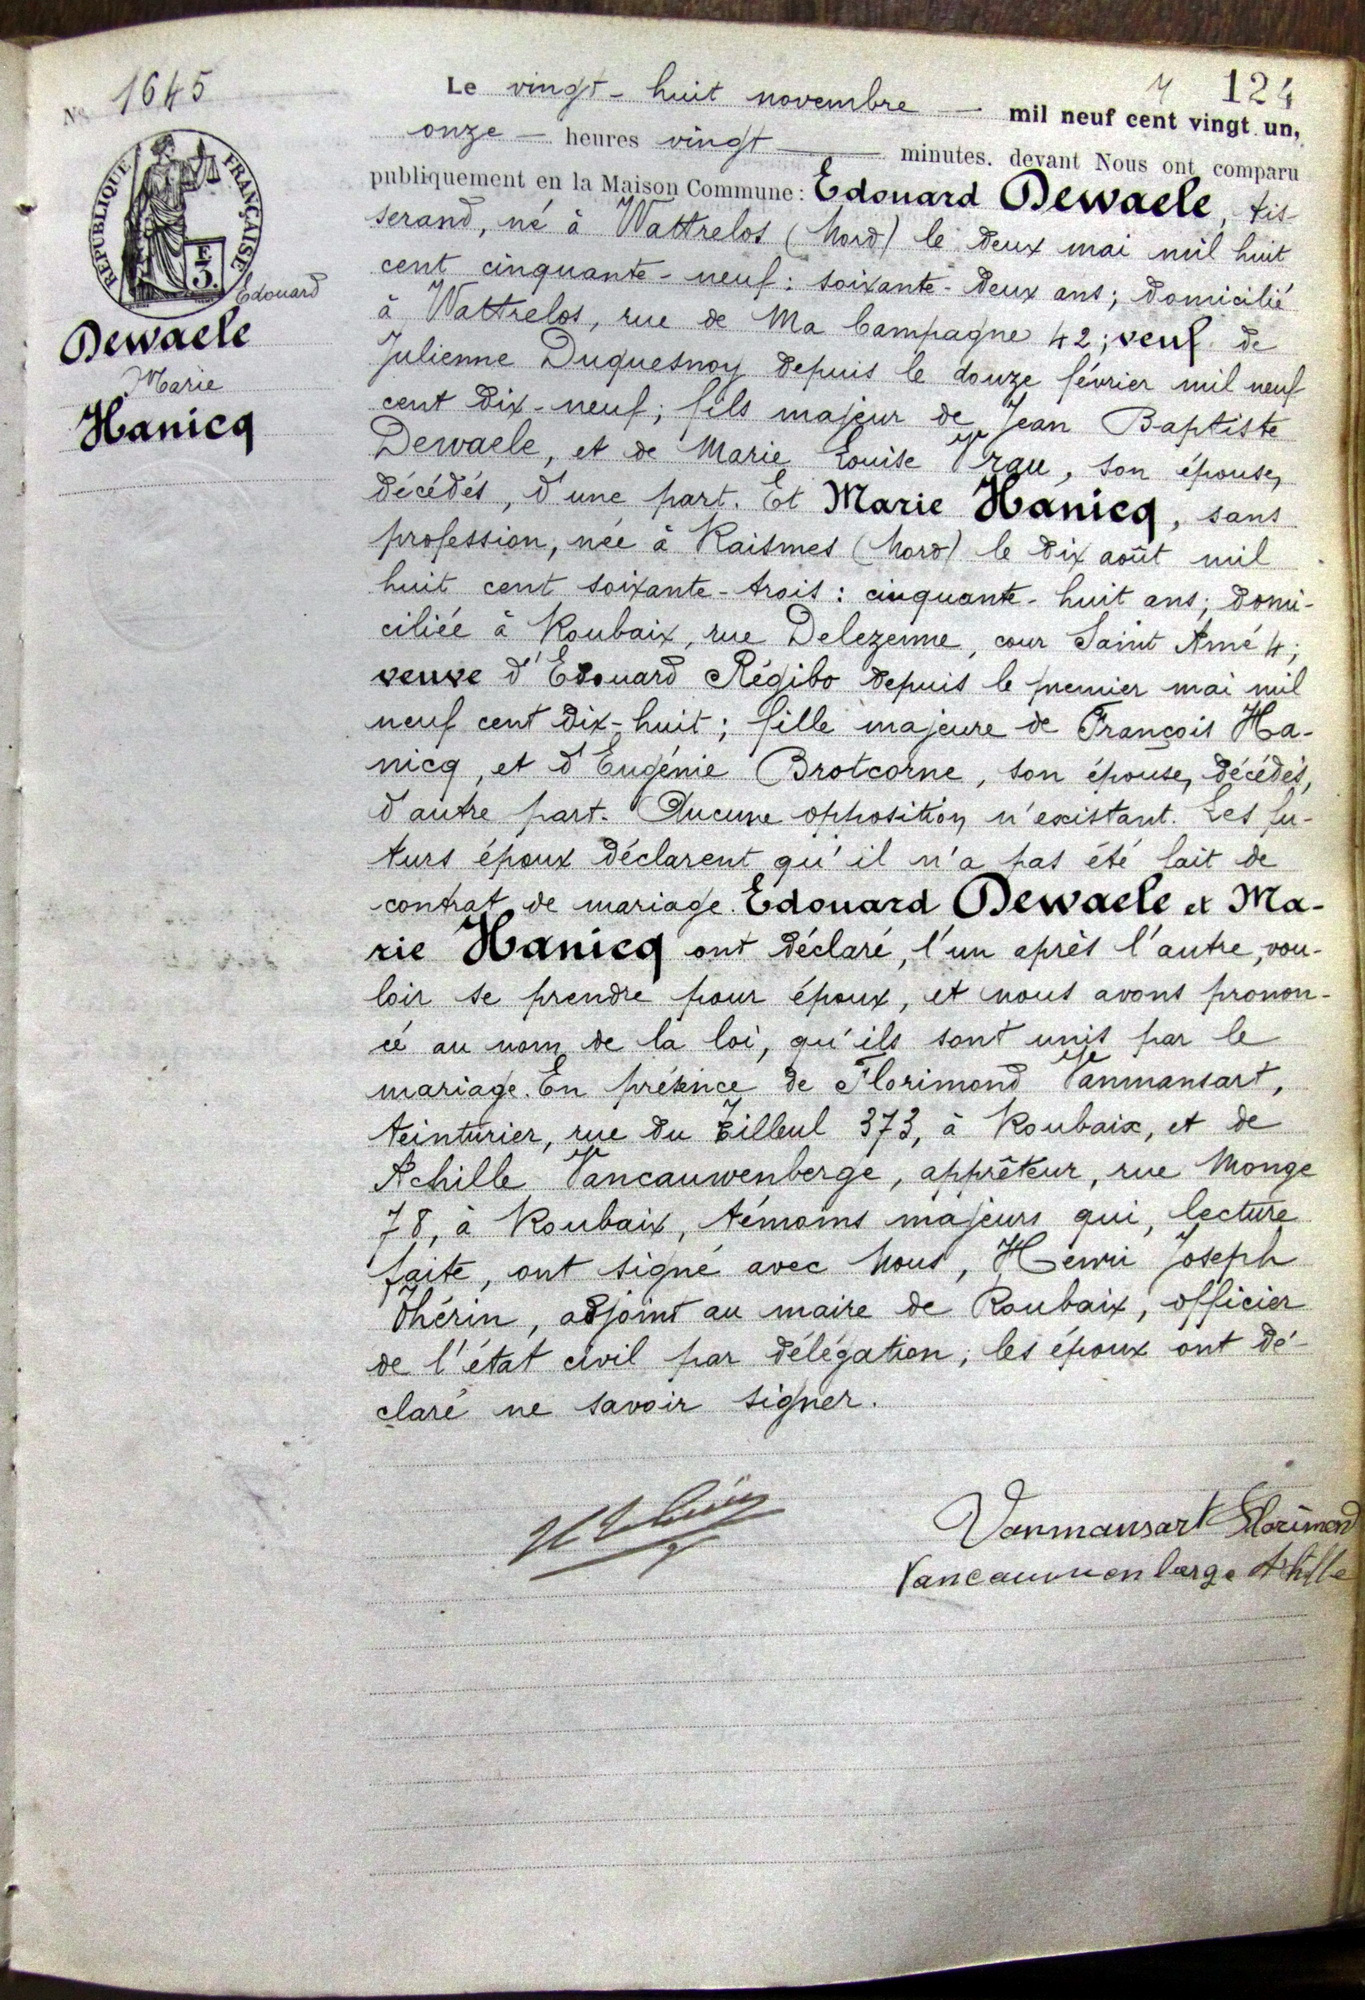 No 1645
RÉPUBLIQUE FRANÇAISE
E
3.
Edouard
Dewaele
Marie
Hanicq
124
Le vingt-huit novembre — mil neuf cent vingt un,
onze — heures vingt — minutes. devant Nous ont comparu
publiquement en la Maison Commune: Edouard Dewaele, tis-
serand, né à Wattrelos (Nord) le deux mai mil huit
cent cinquante-neuf: soixante-deux ans; domicilié
à Wattrelos, rue de Ma Campagne 42; veuf de
Julienne Duquesnoy depuis le douze février mil neuf
cent dix-neuf; fils majeur de Jean Baptiste
Dewaele, et de Marie Louise Vrau, son épouse,
décédés, d'une part. Et Marie Hanicq, sans
profession, née à Raismes (Nord) le dix août mil
huit cent soixante-trois: cinquante-huit ans; domi-
ciliée à Roubaix, rue Delezenne, cour Saint Amé 4;
veuve d'Edouard Régibo depuis le premier mai mil
neuf cent dix-huit; fille majeure de François Ha-
nicq, et d'Eugénie Brotcorne, son épouse, décédés,
d'autre part. Aucune opposition n'existant. Les fu-
turs époux déclarent qu'il n'a pas été fait de
contrat de mariage. Edouard Dewaele et Ma-
rie Hanicq ont déclaré, l'un après l'autre, vou-
loir se prendre pour époux, et nous avons pronon-
cé au nom de la loi, qu'ils sont unis par le
mariage. En présence de Florimond Vanmansart,
teinturier, rue du Tilleul 373, à Roubaix, et de
Achille Vancauwenberge, apprêteur, rue Monge
78, à Roubaix, témoins majeurs qui, lecture
faite, ont signé avec Nous, Henri Joseph
Thérin, adjoint au maire de Roubaix, officier
de l'état civil par délégation; les époux ont dé-
claré ne savoir signer.
Vanmansart Florimond
Vancauwenberge Achille